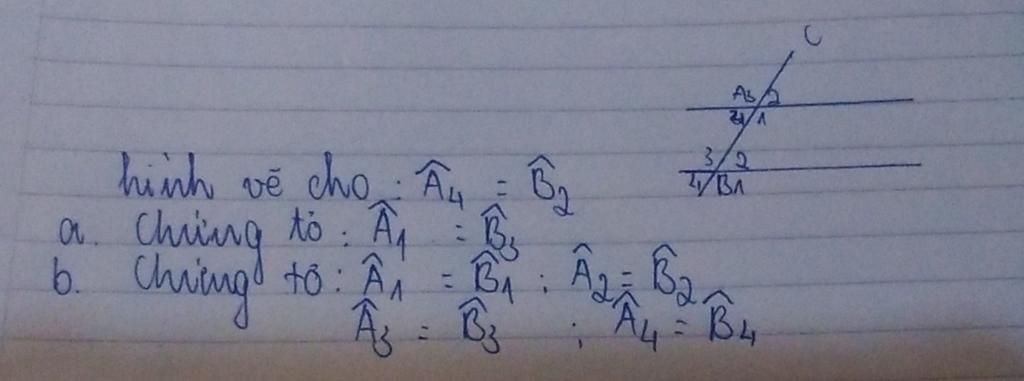 C
A3 2
4 1
3 2
4 B1
hình vẽ cho : Â₄ = B̂₂
a. Chứng tỏ : Â₁ = B̂₃
b. Chứng tỏ : Â₁ = B̂₁ ; Â₂ = B̂₂
Â₃ = B̂₃ ; Â₄ = B̂₄